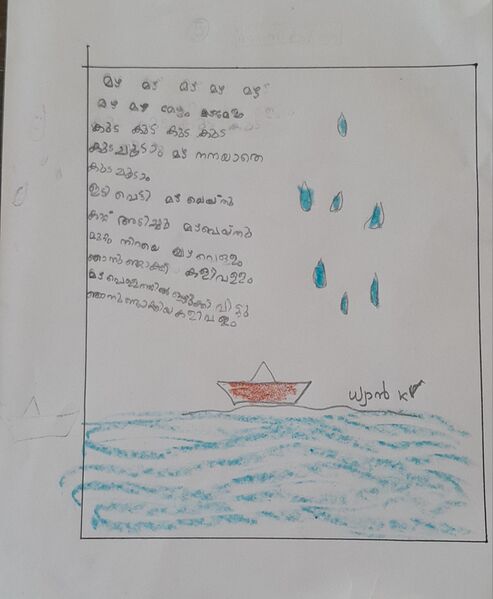 മഴ മഴ മഴ മഴ മഴ
മഴ മഴ
കുട കുട കുട കുട
മഴ നനയാതെ
കുടചൂടാം
ഇടി വെട്ടി മഴ പെയ്തു
കാറ്റ് അടിച്ചു മഴപെയ്തു
മുറ്റം നിറയെ മഴവെള്ളം
കളിവള്ളം
മഴവെള്ളത്തിൽ ഒഴുക്കി വിട്ടു
കളിവള്ളം
ധ്യാൻ K
5